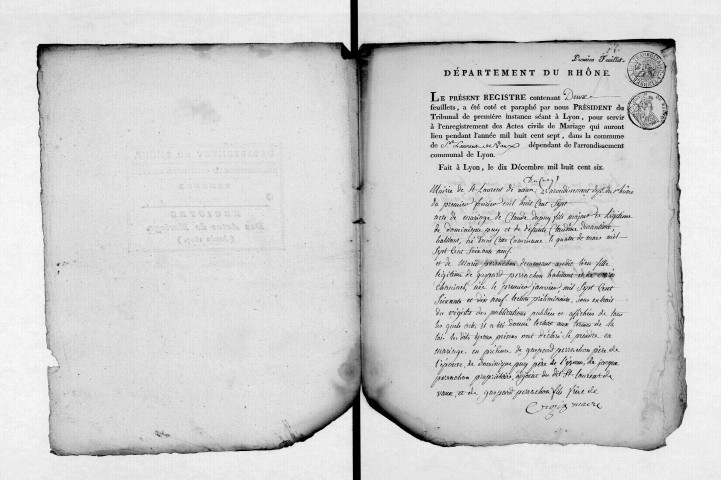 Premier Feuillet.
DÉPARTEMENT DU RHÔNE.
LE PRÉSENT REGISTRE contenant Deux
feuillets, a été coté et paraphé par nous PRÉSIDENT du
Tribunal de première instance séant à Lyon, pour servir
à l'enregistrement des Actes civils de Mariage qui auront
lieu pendant l'année mil huit cent sept, dans la commune
de St Laurent de Vaux dépendant de l'arrondissement
communal de Lyon.
Fait à Lyon, le dix Décembre mil huit cent six.
Mairie de St Laurent de vaux arrondissement dept du rhône
du premier fevrier mil huit Cent Sept
acte de mariage de Claude dupuy fils majeur et légitime
de dominique puy et de défunte Claudine
habitans, né dans Cette Commune le quatre de mars mil
Sept Cent Soixante neuf
et de Marie perrachon demeurant audit lieu fille
légitime de gaspard perrachon habitant
née le premier janvier, mil Sept Cent
Soixante et dix neuf les préliminaires, sont extraits
du régistre des publications publiées et affichées de tous
les quels acte, il a été donné lecture aux termes de la
loi les dits époux présens ont déclaré Se prendre en
mariage en présence de gaspard perrachon père de
l'épouse, de dominique puy père de l'époux, de
perrachon propriétaire, adjoint du dit St laurent de
vaux, et de gaspard perrachon fils frère de
maire